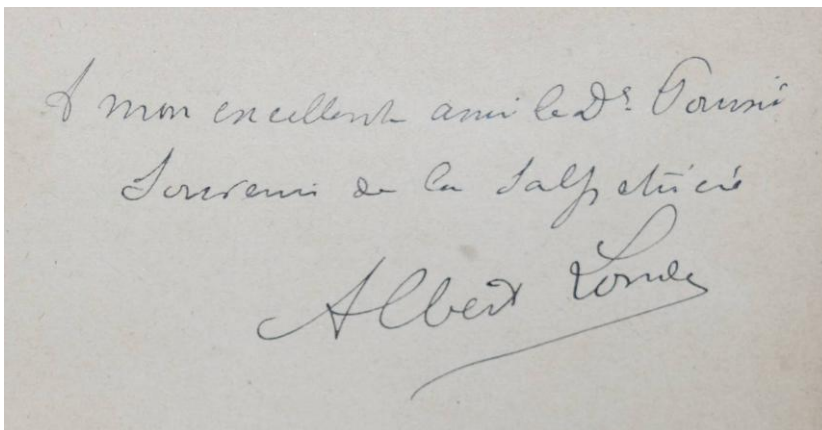 A mon excellent ami le Dr.
Souvenir de la Salpêtrière
Albert Londe